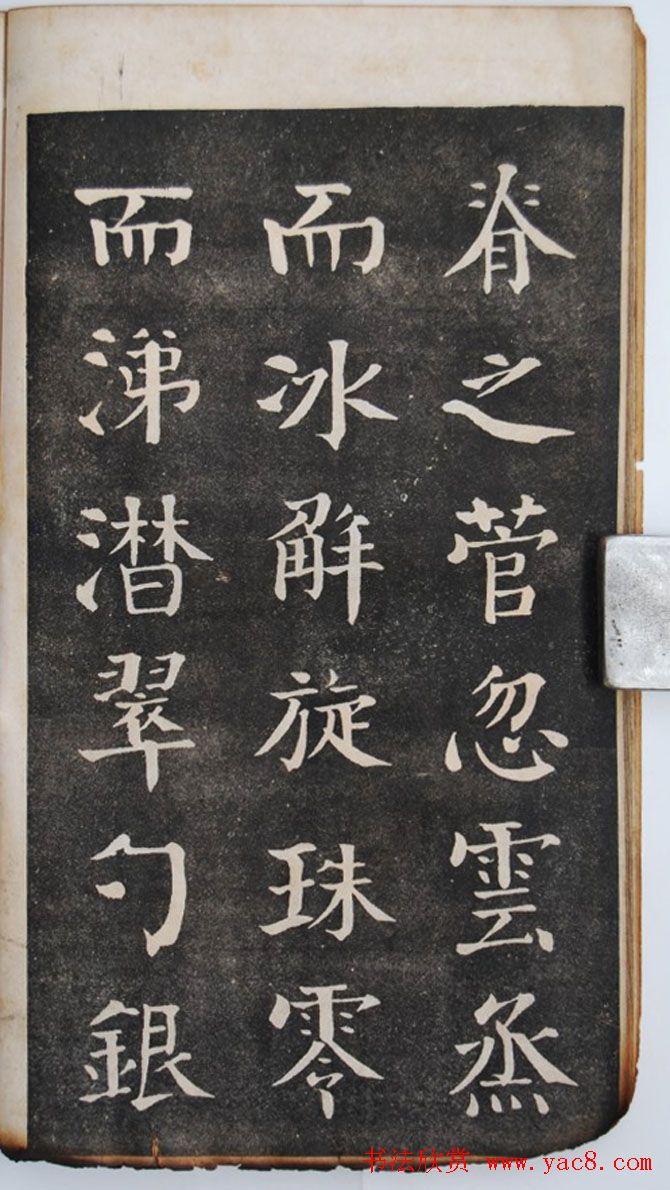 脊之菅忽雲烝
而冰解旋珠零
而涕潜翠勺銀
书法欣赏-www.yac8.com